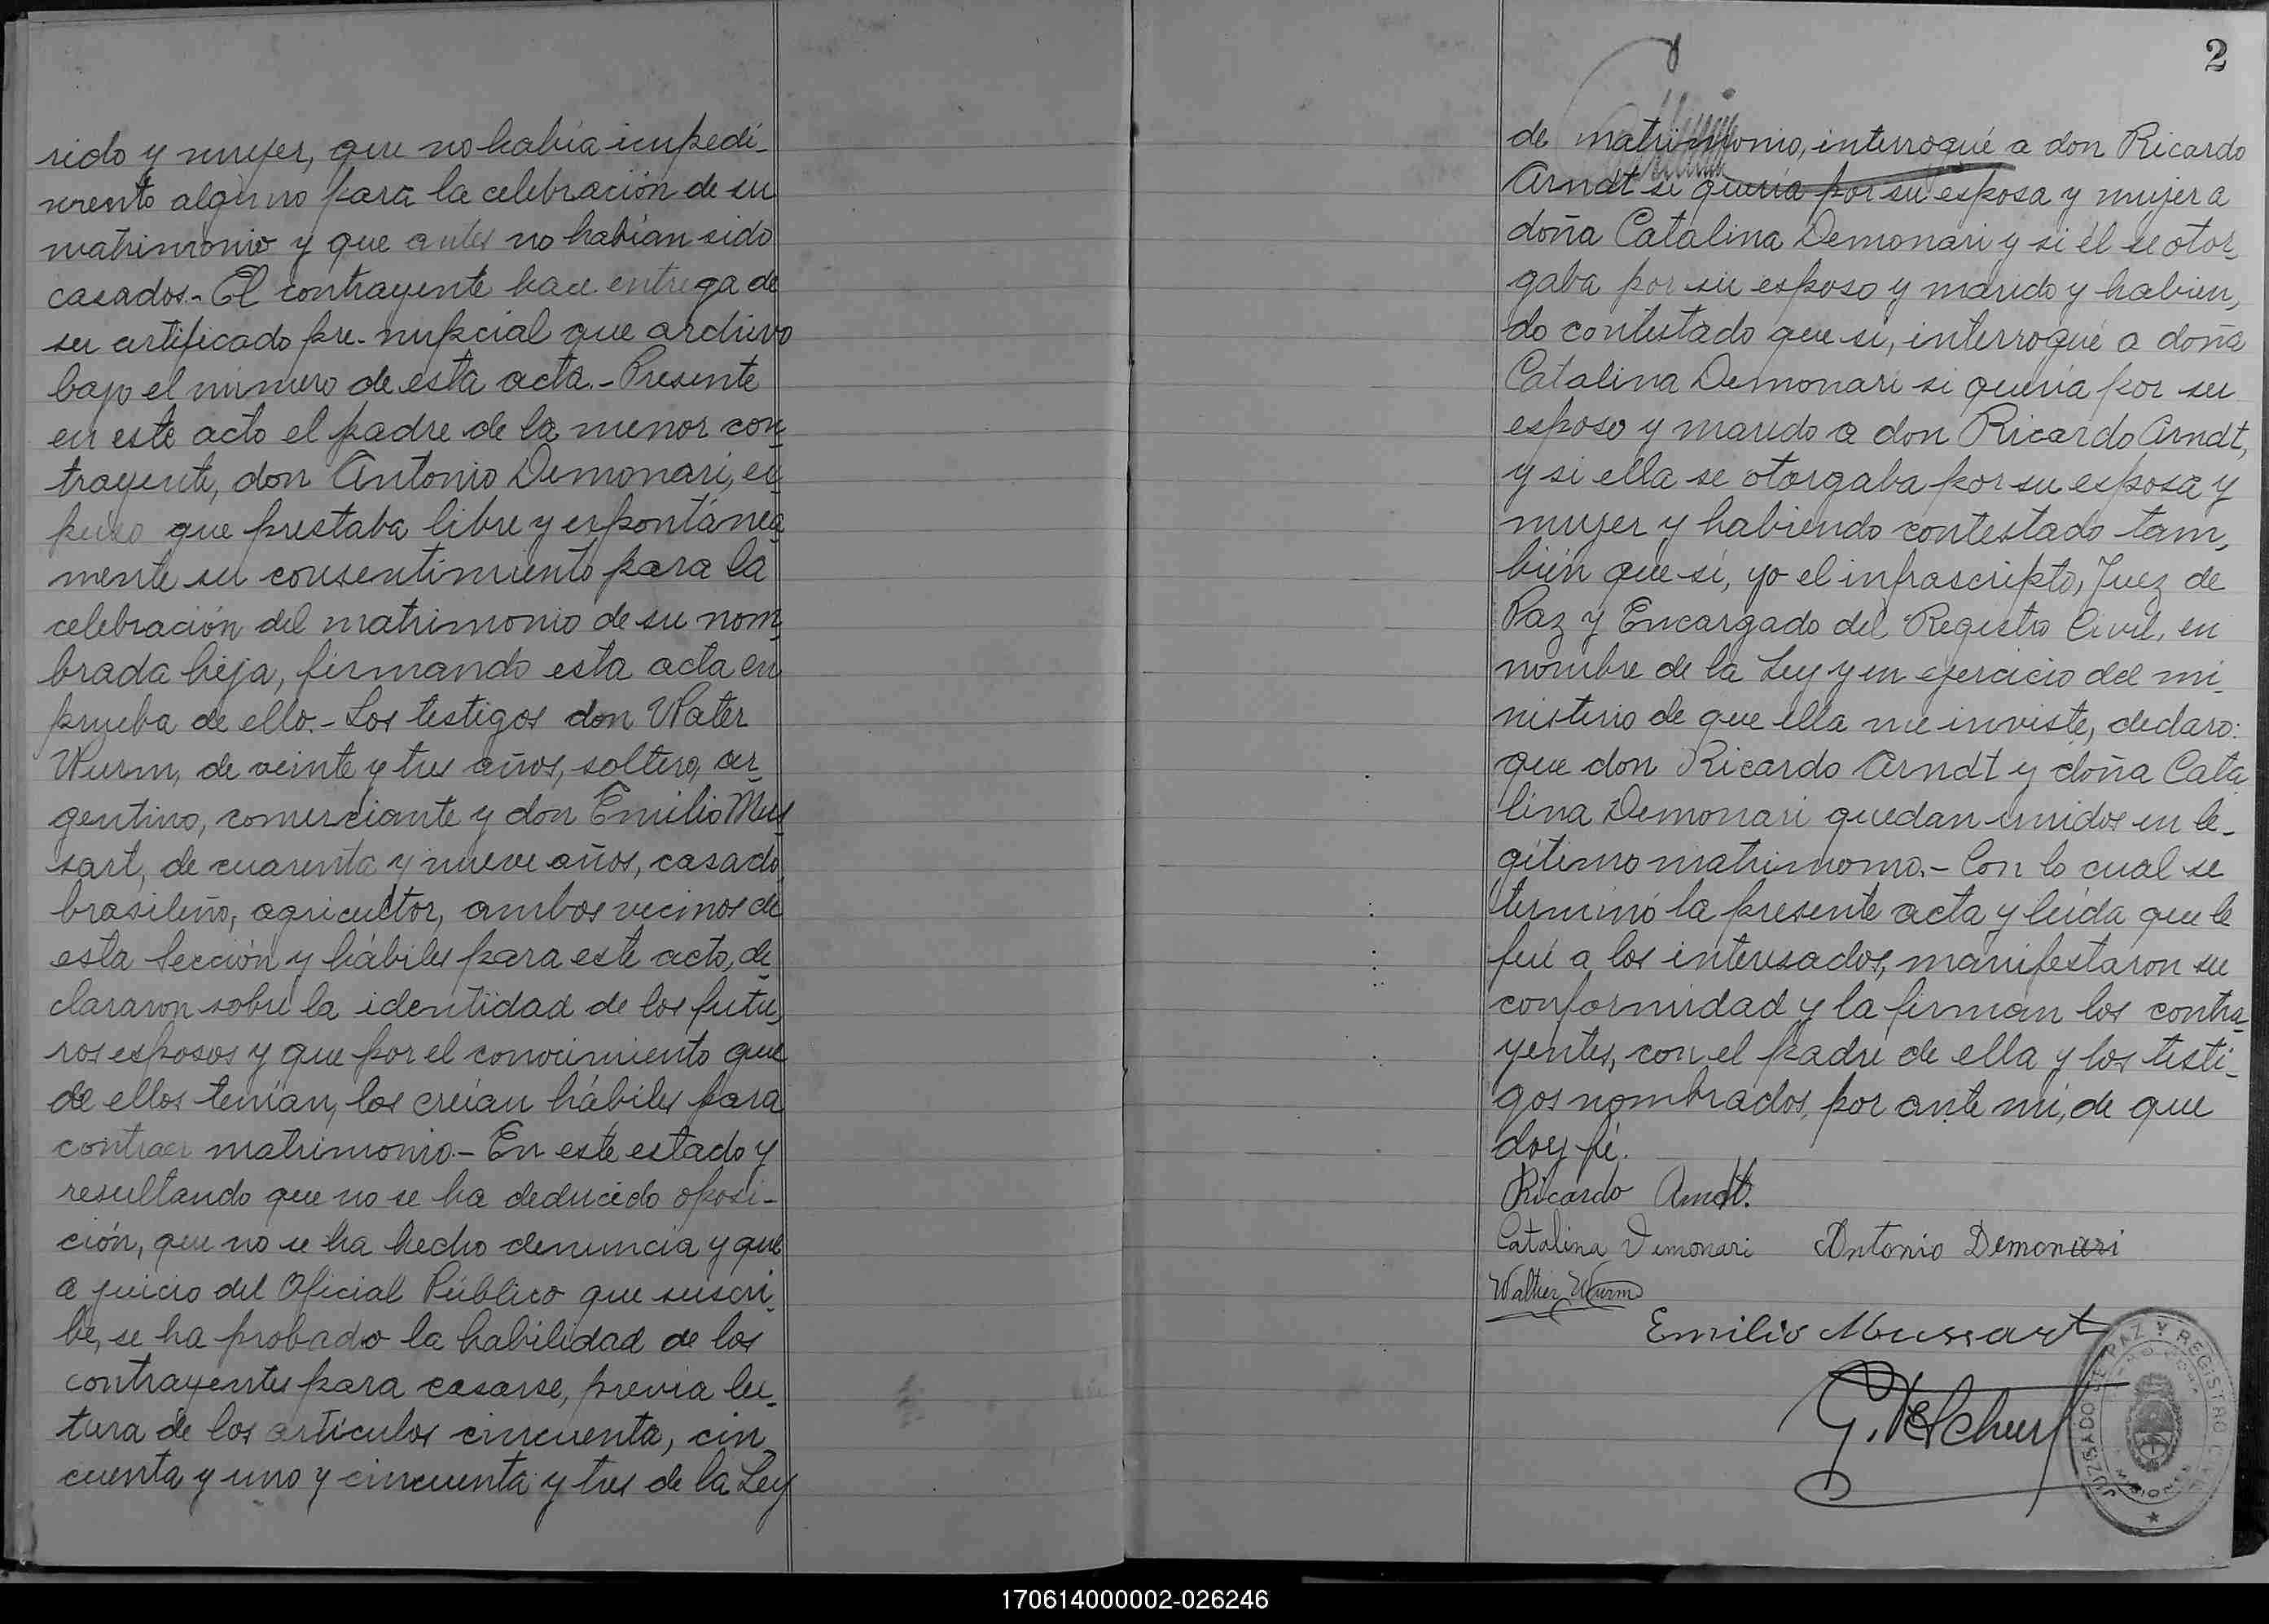 rido y mujer, que no había impedi-
mento alguno para la celebración de su
matrimonio y que antes no habían sido
casados.- El contrayente hace entrega de
su certificado pre-nupcial que archivo
bajo el número de esta acta.- Presente
en este acto el padre de la menor con-
trayente, don Antonio Demonari, ex-
puso que prestaba libre y espontánea-
mente su consentimiento para la
celebración del matrimonio de su nom-
brada hija, firmando esta acta en
prueba de ello.- Los testigos don Walter
Wurm, de veinte y tres años, soltero, ar-
gentino, comerciante y don Emilio Mus-
sart, de cuarenta y nueve años, casado,
brasileño, agricultor, ambos vecinos de
esta Sección y hábiles para este acto, de-
clararon sobre la identidad de los futu-
ros esposos y que por el conocimiento que
de ellos tenían, los creían hábiles para
contraer matrimonio.- En este estado y
resultando que no se ha deducido oposi-
ción, que no se ha hecho denuncia y que
a juicio del Oficial Público que suscri-
be, se ha probado la habilidad de los
contrayentes para casarse, previa lec-
tura de los artículos cincuenta, cin-
cuenta y uno y cincuenta y tres de la Ley
2
de matrimonio, interrogué a don Ricardo
Arndt si quería por su esposa y mujer a
doña Catalina Demonari y si él se otor-
gaba por su esposo y marido y habien-
do contestado que si, interrogué a doña
Catalina Demonari si quería por su
esposo y marido a don Ricardo Arndt,
y si ella se otorgaba por su esposa y
mujer y habiendo contestado tam-
bién que si, yo el infrascripto, Juez de
Paz y Encargado del Registro Civil, en
nombre de la Ley y en ejercicio del mi-
nisterio de que ella me inviste, declaro:
que don Ricardo Arndt y doña Cata-
lina Demonari quedan unidos en le-
gítimo matrimonio.- Con lo cual se
terminó la presente acta y leída que le
fué a los interesados, manifestaron su
conformidad y la firman los contra-
yentes, con el padre de ella y los testi-
gos nombrados, por ante mí, de que
doy fé.
Ricardo Arndt.
Catalina Demonari Antonio Demonari
Walter Wurm
Emilio Mussart
JUZGADO DE PAZ Y REGISTRO CIVIL
MISIONES
170614000002-026246